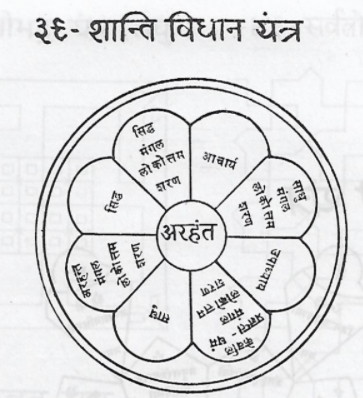 ३६- शान्ति विधान यंत्र
अरहंत
सिद्ध
मंगल
लोकोत्तम
शरण
आचार्य
साधु
मंगल
लोकोत्तम
शरण
उपाध्याय
केवलि
प्रज्ञप्त - धर्म
मंगल
लोकोत्तम
शरण
साधु
अरहंत
मंगल
लोकोत्तम
शरण
सिद्ध